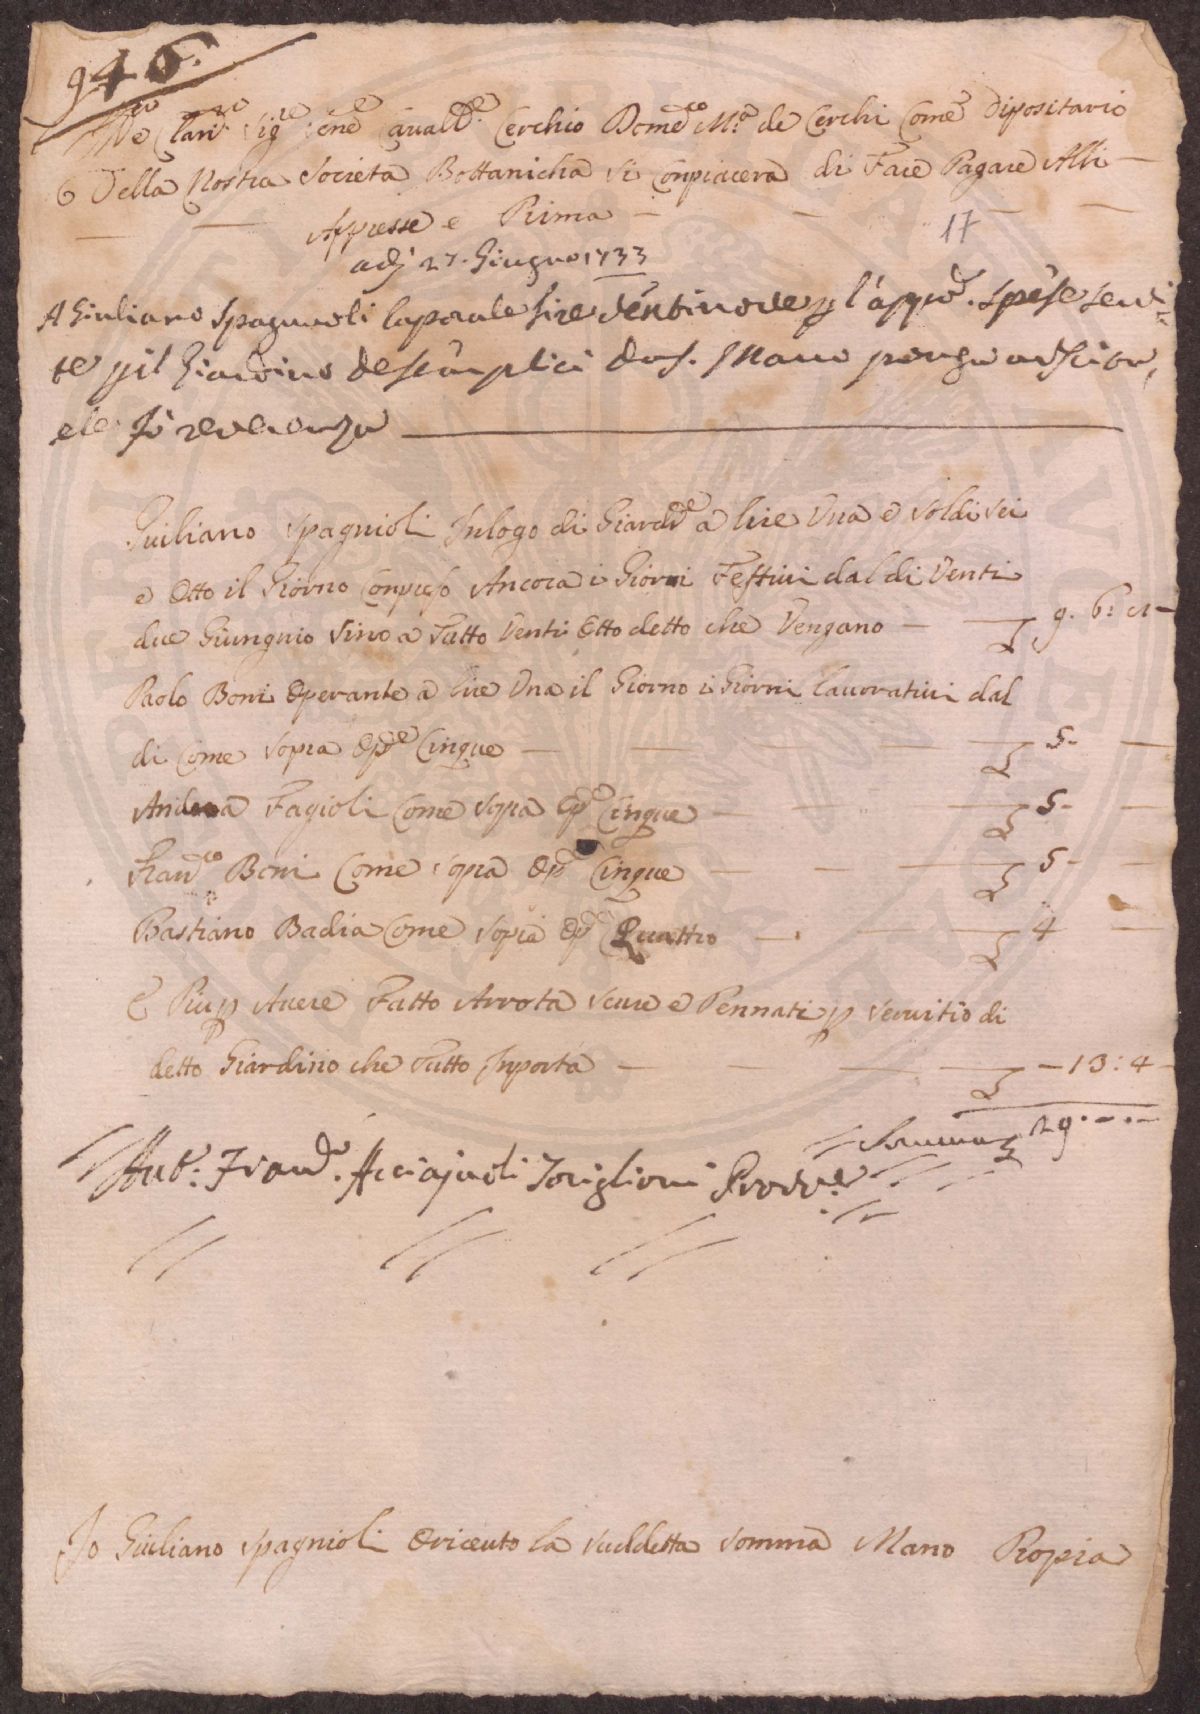 946.
Ill.mo Clar.mo Sig.re Sene.e Caual.re Cerchio Dome.co M.a de Cerchi Come Dipositario
Della Nostra Societa Bottanicha Si Conpiacera di Fare Pagare Alli
Appresse e Prima
17
adj 27. Giugno 1733
A Giuliano Spagnuoli Caporale lire Ventinove p l'appo. Spese serui
te p il Giardino de semplici da S. Marco
e le fò reverenza
Giuliano Spagnioli Inlogo di Giard.re a lire Una e Soldi Sei
e Otto il Giorno Conpreso Ancora i Giorni Festiui dal di Venti
due Giungnio Sino a Tutto Venti Otto detto che Vengano £ 9. 6: 8
Paolo Boni Operante a lire Una il Giorno i Giorni Lauoratiui dal
di Come Sopra Op.e Cinque £ 5.
Andrea Fagioli Come Sopra Op.e Cinque £ 5
Fran.co Boni Come Sopra Op.e Cinque £ 5
Bastiano Badia Come Sopra Op.e Quattro £ 4
E Piu p Auere Fatto Arrota Scure e Pennati p Seruitio di
detto Giardino che Tutto Inporta £ - 13: 4
Somma £ 29. - . -
Ant.o Fran.o Acciajuoli Toriglioni Provv.re
Io Giuliano Spagnioli O riceuto la Suddetta Somma Mano Propia